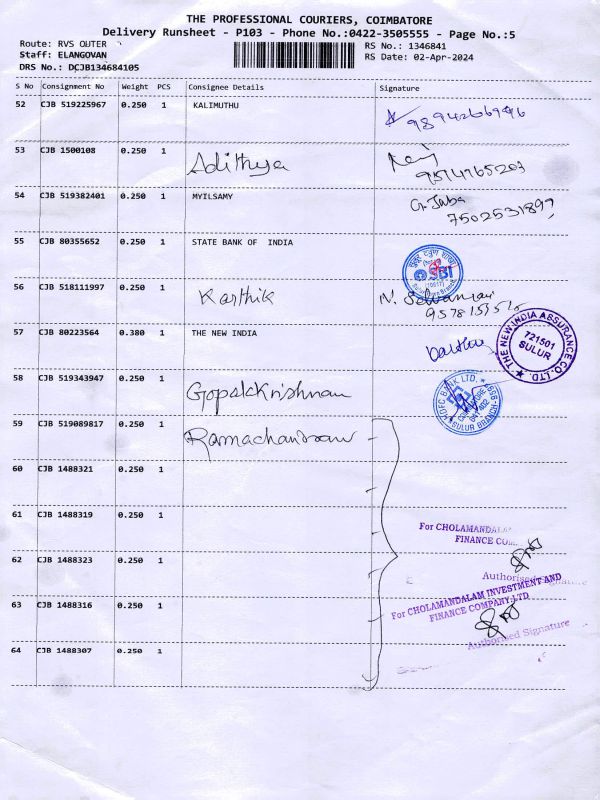 THE PROFESSIONAL COURIERS, COIMBATORE
Delivery Runsheet - P103 - Phone No.:0422-3505555 - Page No.:5
Route: RVS OUTER
RS No.: 1346841
Staff: ELANGOVAN
RS Date: 02-Apr-2024
DRS No.: DCJB134684105
S No Consignment No Weight PCS Consignee Details Signature
52 CJB 519225967 0.250 1 KALIMUTHU
53 CJB 1500108 0.250 1 Adithya
54 CJB 519382401 0.250 1 MYILSAMY
7502531897
55 CJB 80355652 0.250 1 STATE BANK OF INDIA
SBI
56 CJB 518111997 0.250 1 Karthik
57 CJB 80223564 0.380 1 THE NEW INDIA
THE NEW INDIA ASSURANCE CO.LTD.
721501
SULUR
58 CJB 519343947 0.250 1 Gopalakrishnan
HDFC BANK LTD.
SULUR BRANCH
59 CJB 519089817 0.250 1 Ramachandran
60 CJB 1488321 0.250 1
61 CJB 1488319 0.250 1
For CHOLAMANDAL
FINANCE CO
62 CJB 1488323 0.250 1
Authorised Signature
63 CJB 1488316 0.250 1
For CHOLAMANDALAM INVESTMENT AND
FINANCE COMPANY LTD
Authorised Signature
64 CJB 1488307 0.250 1